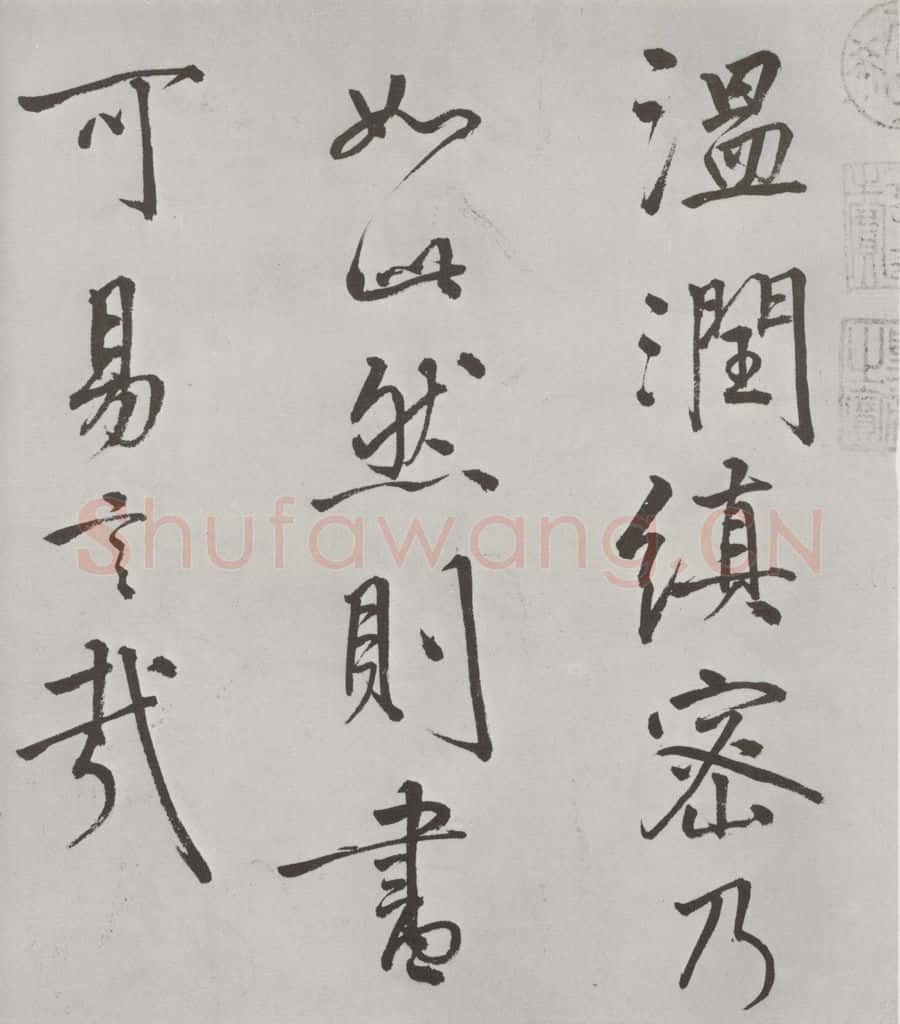 溫潤縝密乃
如此然則畫
可易言哉
Shufawang.CN